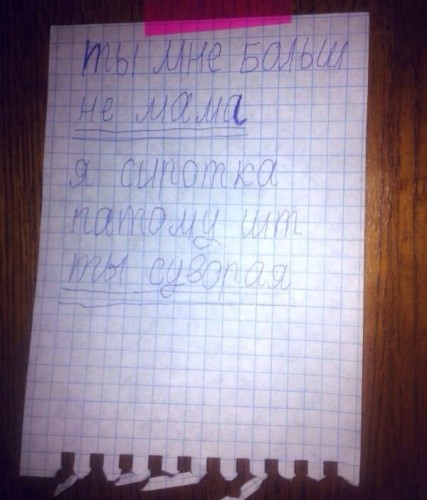 ты мне больш
не мама
я сиротка
патому шт
ты суворая